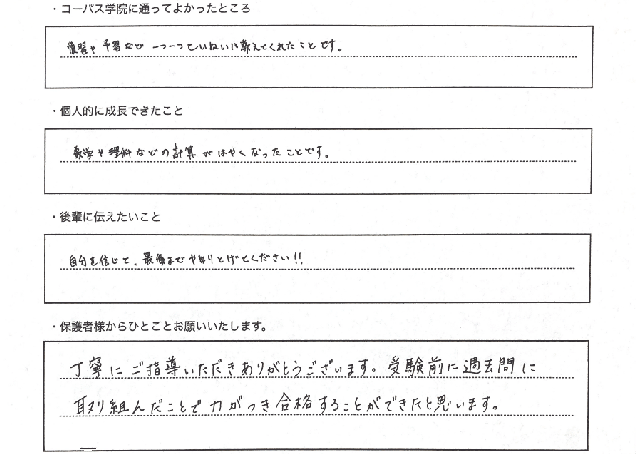 ・コーパス学院に通ってよかったところ
復習や予習など一つ一つていねいに教えてくれたことです。
・個人的に成長できたこと
数学や理科などの計算がはやくなったことです。
・後輩に伝えたいこと
自分を信じて、最後までやりとげてください!!
・保護者様からひとことお願いいたします。
丁寧にご指導いただきありがとうございます。受験前に過去問に
取り組んだことで力がつき合格することができたと思います。